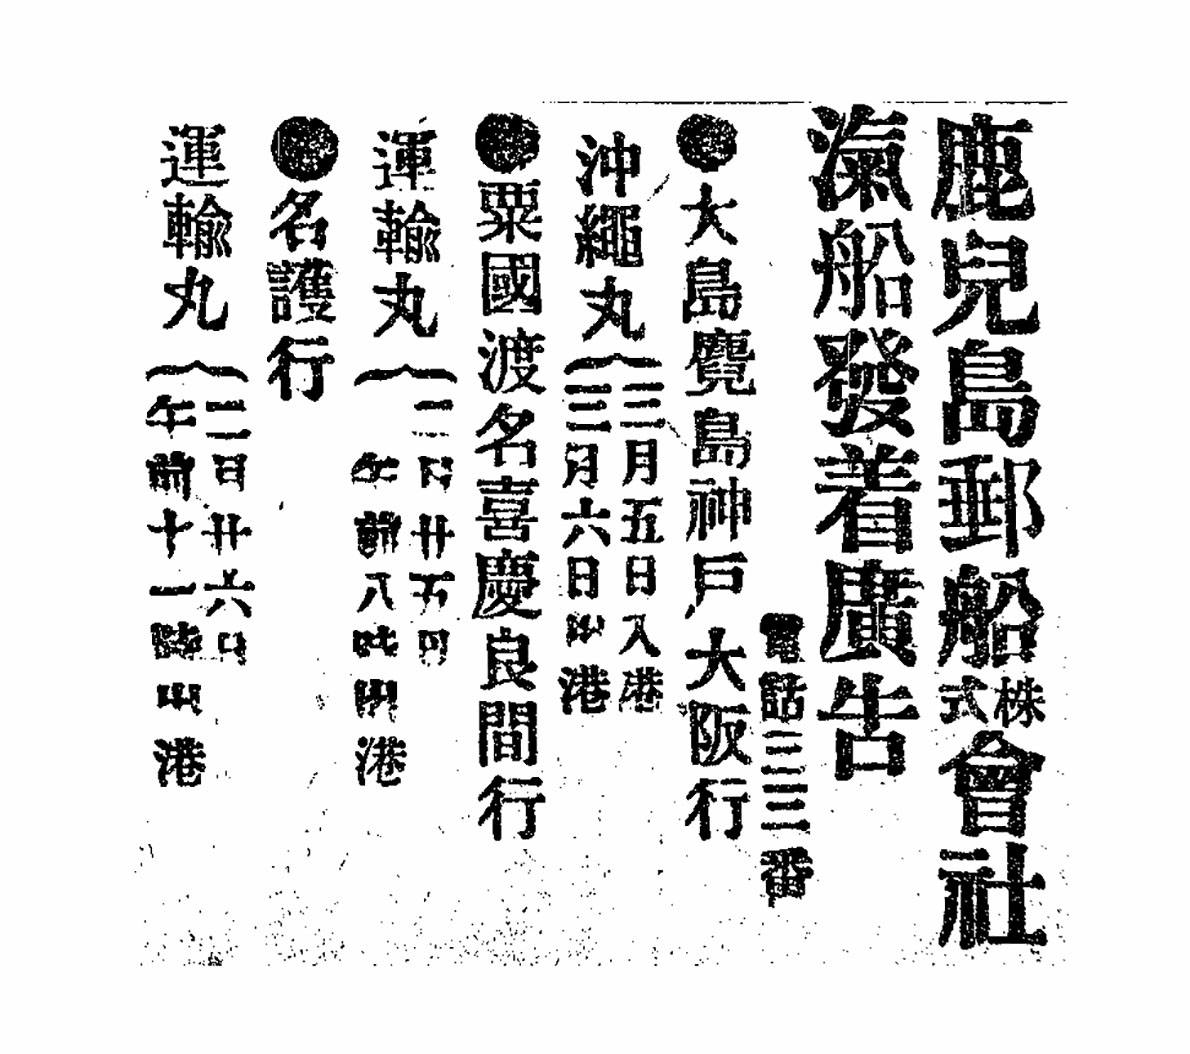 鹿兒島郵船株式會社
滊船發着廣告
電話三三番
●大島麑島神戸大阪行
沖繩丸{三月五日入港
三月六日出港
●粟國渡名喜慶良間行
運輸丸{二日廿五日
午前八時出港
●名護行
運輸丸{二日廿六日
午前十一時出港